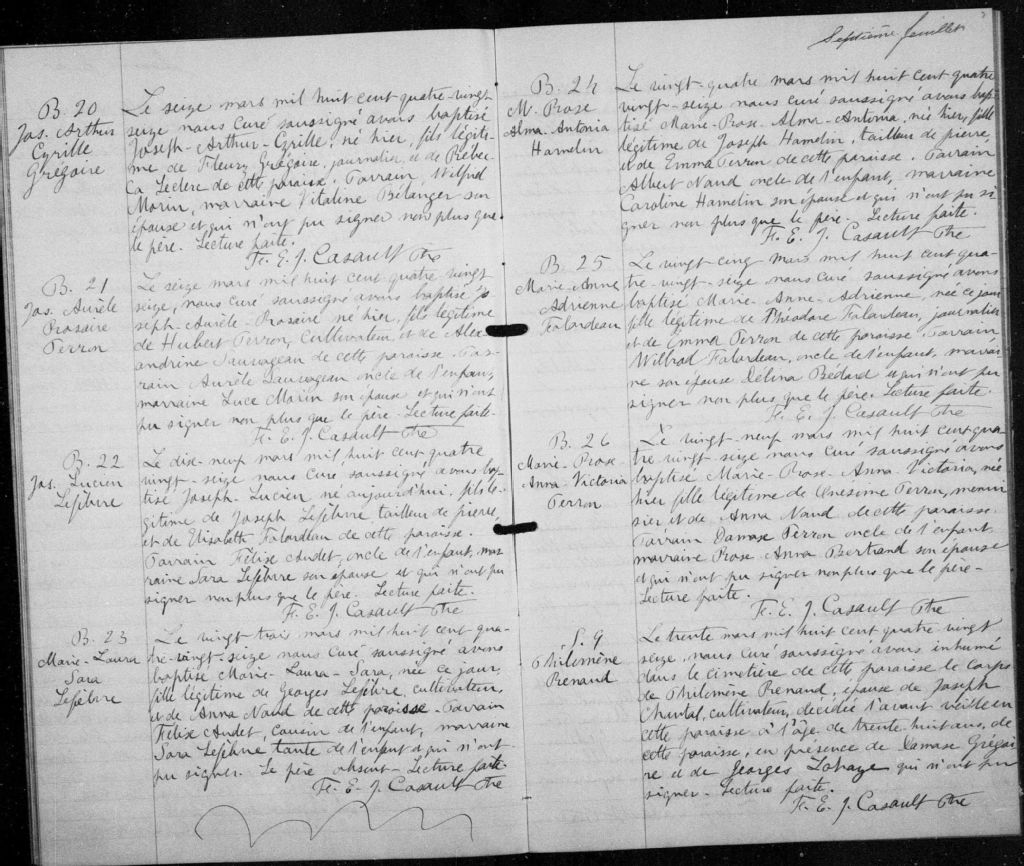 Septième feuillet
B. 20
Jos. Arthur
Cyrille
Grégoire
Le seize mars mil huit cent quatre-vingt
seize nous Curé soussigné avons baptisé
Joseph-Arthur-Cyrille, né hier, fils légiti-
me de Fleury Grégoire, journalier et de Rébec-
ca Leclerc de cette paroisse. Parrain, Wilfrid
Morin, marraine Vitaline Bélanger son
épouse et qui n'ont pu signer non plus que
le père. Lecture faite.
F. E. J. Casault Ptre
B. 21
Jos. Aurèle
Rosaire
Perron
Le seize mars mil huit cent quatre vingt
seize, nous Curé soussigné avons baptisé Jo-
seph-Aurèle-Rosaire né hier, fils légitime
de Hubert Perron, Cultivateur, et de Alex-
andrine Sauvageau de cette paroisse. Par-
rain Aurèle Sauvageau oncle de l'enfant,
marraine Luce Morin son épouse et qui n'ont
pu signer non plus que le père. Lecture faite.
F. E. J. Casault Ptre
B. 22
Jos. Lucien
Lefebvre
Le dix-neuf mars mil huit cent quatre
vingt-seize nous Curé soussigné avons bap-
tisé Joseph-Lucien né aujourd'hui, fils lé-
gitime de Joseph Lefebvre, tailleur de pierre,
et de Elisabeth Falardeau de cette paroisse.
Parrain Félix Audet, oncle de l'enfant, mar
raine Sara Lefebvre son épouse et qui n'ont pu
signer non plus que le père. Lecture faite.
F. E. J. Casault Ptre
B. 23
Marie-Laura
Sara
Lefebvre
Le vingt trois mars mil huit cent qua-
tre-vingt-seize nous Curé soussigné avons
baptisé Marie-Laura-Sara, née ce jour,
fille légitime de Georges Lefebvre, cultivateur,
et de Anna Naud de cette paroisse. Parrain
Félix Audet, cousin de l'enfant, marraine
Sara Lefebvre tante de l'enfant et qui n'ont
pu signer. Le père absent. Lecture faite.
F. E. J. Casault Ptre
B. 24
M. Rose
Alma-Antonia
Hamelin
Le vingt-quatre mars mil huit cent quatre
vingt-seize nous Curé soussigné avons bap-
tisé Marie-Rose-Alma-Antonia, née hier, fille
légitime de Joseph Hamelin, tailleur de pierre,
et de Emma Perron de cette paroisse. Parrain
Albert Naud oncle de l'enfant, marraine
Caroline Hamelin son épouse et qui n'ont pu si
gner non plus que le père. Lecture faite.
F. E. J. Casault Ptre
B. 25
Marie-Anne
Adrienne
Falardeau
Le vingt cinq mars mil huit cent qua-
tre-vingt-seize nous Curé soussigné avons
baptisé Marie-Anne-Adrienne, née ce jour
fille légitime de Théodore Falardeau, journalier
et de Emma Perron de cette paroisse. Parrain
Wilbrod Falardeau, oncle de l'enfant, marrai
ne son épouse Délina Bédard et qui n'ont pu
signer non plus que le père. Lecture faite.
F. E. J. Casault Ptre
B. 26
Marie-Rose
Anna-Victoria
Perron
Le vingt-neuf mars mil huit cent qua
tre vingt-seize nous Curé soussigné avons
baptisé Marie-Rose-Anna-Victoria, née
hier fille légitime de Onésime Perron, menui
sier et de Anna Naud de cette paroisse.
Parrain Damase Perron oncle de l'enfant
marraine Rose-Anna Bertrand son épouse
et qui n'ont pu signer non plus que le père-
Lecture faite.
F. E. J. Casault Ptre
S. 9
Philomène
Renaud
Le trente mars mil huit cent quatre vingt
seize, nous Curé soussigné avons inhumé
dans le cimetière de cette paroisse le corps
de Philomène Renaud, épouse de Joseph
Chantal, cultivateur, décédée l'avant veille en
cette paroisse à l'âge de trente-huit ans, de
cette paroisse, en présence de Damase Grégoi
re et de Georges Lahaye qui n'ont pu
signer. Lecture faite.
F. E. J. Casault Ptre